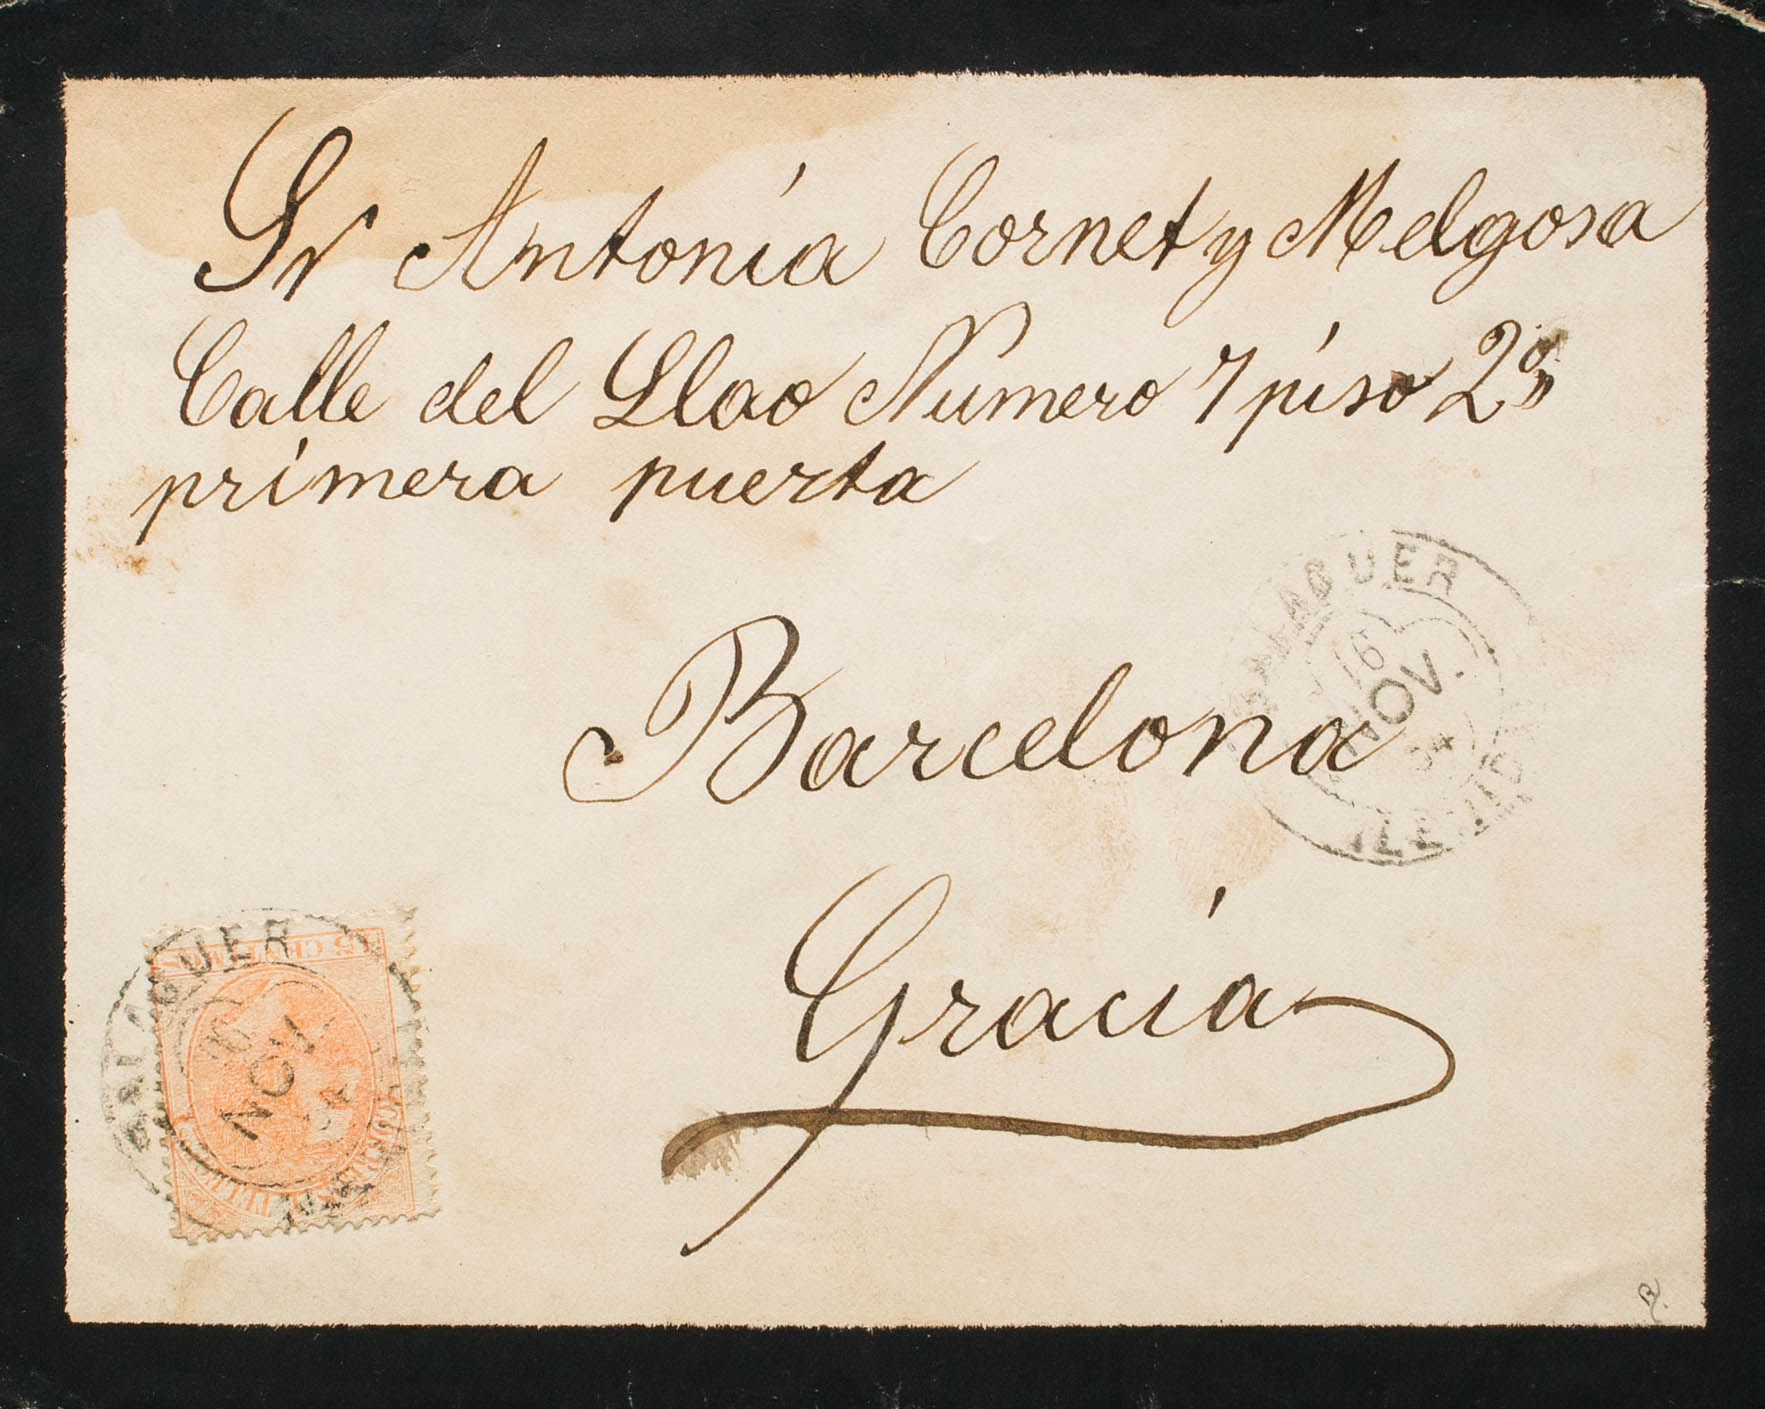 Sr Antonia Cornet y Melgosa
Calle del Llao Número 7 piso 2º
primera puerta
BALAGUER
16
NOV.
84
LERIDA
Barcelona
Gracia
BALAGUER
16
NOV.
84
15 CENTIMOS